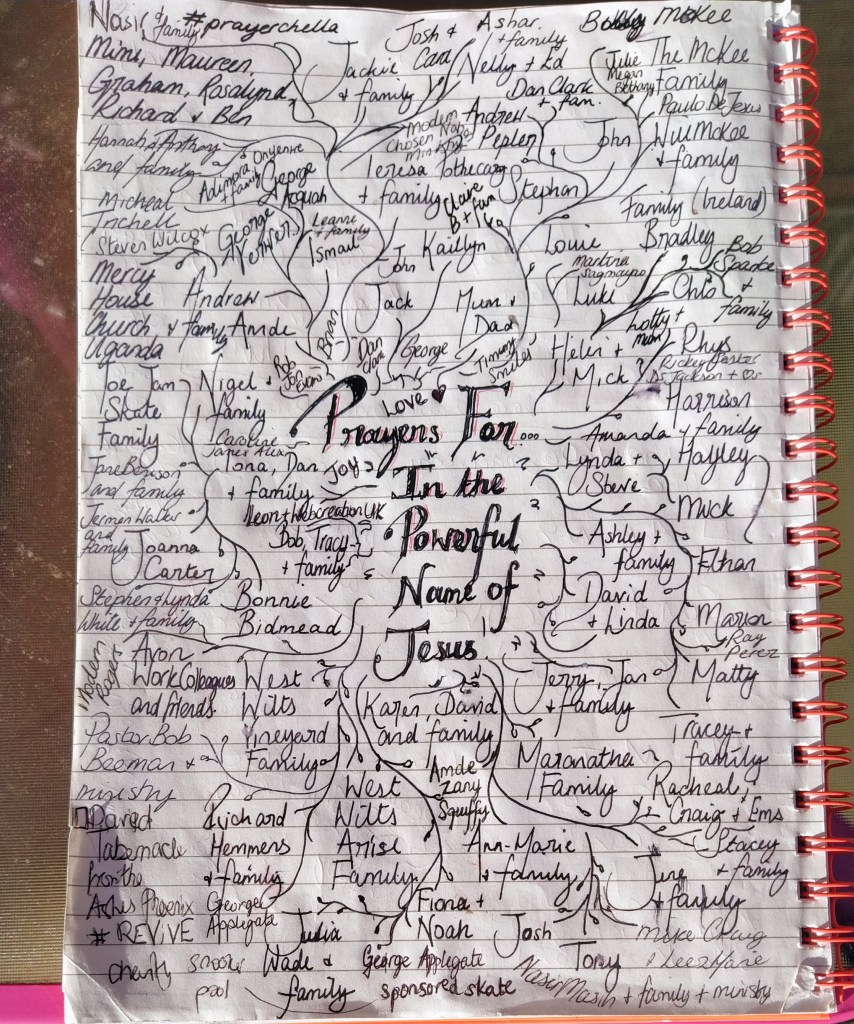 Nasir & family #prayerchella
Josh & Cara
Ashar & family
Bobby McKee
Mimi, Maureen,
Graham, Rosalynd,
Richard & Ben
Jackie
& family
Nelly + Ed
Dan Clark
+ fam.
Julie
Megan
Bethany
The McKee
Family
Paulo De Jesus
Hannah & Anthony
and family
Onyenre
Adimora
& family
George
Acquah
Modern
Chosen
ministry
Andrew
Pepler
John
Will McKee
& family
Teresa Pothecary
& family
Claire
B + fam
Stephan
Family (Ireland)
Micheal
Trichell
Steven Wilcox
George
Verwer
Leanne
& family
Ismail
John
Kaitlyn
Louie
Bradley
Bob
Sparke
&
family
Mercy
House
Church,
Uganda
Andrew
& family
Amde
Brian
Jack
Mum &
Dad
Martina
Sagmayao
Luke
Chlo
Lotty +
mum
Rhys
Dan
Clark
George
Timmy
Smiles
Helen +
Mick
Rickey
Dr Jackson
Joe Jam
Skate
Family
Nigel &
family
Bob
Jon
Evan
Love
Prayers For...
Harrison
& family
Amanda
Caroline
James Alex
Iona, Dan
& family
Joy
In the
Lynda +
Steve
Hayley
Jane Benson
and family
Leon + Webcreation UK
Powerful
Mick
Jermen Walker
and
family
Bob, Tracy
+ family
Ashley +
family
Ethan
Joanna
Carter
Name of
David
+ Linda
Stephen & Lynda
White + family
Bonnie
Bidmead
Jesus
Marion
Ray
Perez
Modern
Rogers
Avon
Work Colleagues
and friends.
West
Wilts
Vineyard
Family
Karen, David
and family
Jerry, Jan
& family
Matty
Pastor Bob
Beeman &
ministry
Amde
Zany
Squiffy
Maranatha
Family
Tracey +
family
Racheal,
Craig + Ems
David
Tabernacle
from the
Ashes Phoenix
# REVIVE
Richard
Hemmens
& family
West
Wilts
Arise
Family
Ann-Marie
& family
Stacey
& family
June
& family
George
Applegate
Julia
Wade &
family
Fiona +
Noah
Josh
Tony
Mike Craig
& Leez Marie
charity snooker
pool
George Applegate
sponsored skate
Nasir Masih + family + ministry